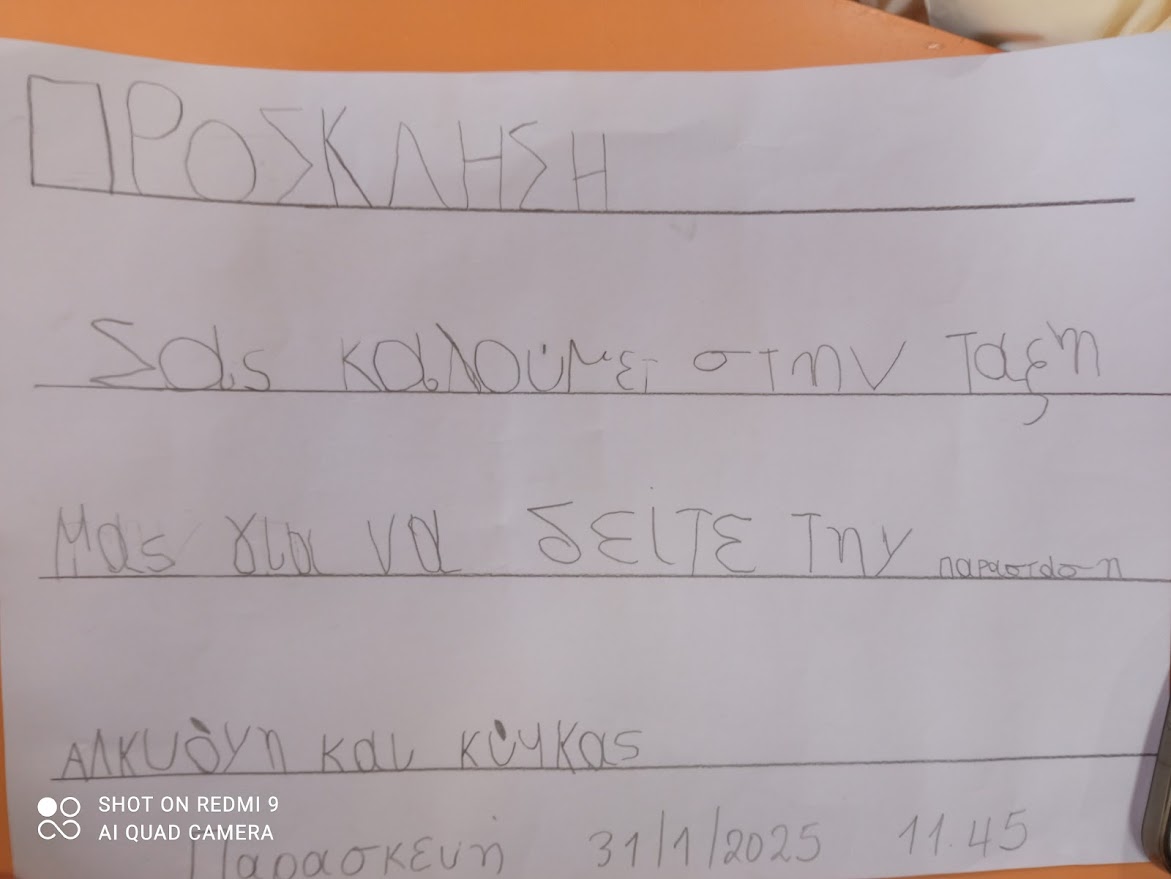 ΠΡΟΣΚΛΗΣΗ
Σας καλούμε στην ταξη
μας για να δείτε την παρασταση
ΑΛΚΥόνη και κύκνας
Παρασκευή 31/1/2025 11.45
SHOT ON REDMI 9
AI QUAD CAMERA